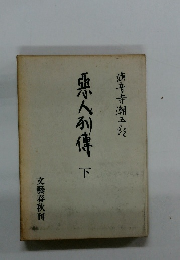 海音寺潮五郎
悪人列傳
下
文藝春秋刊